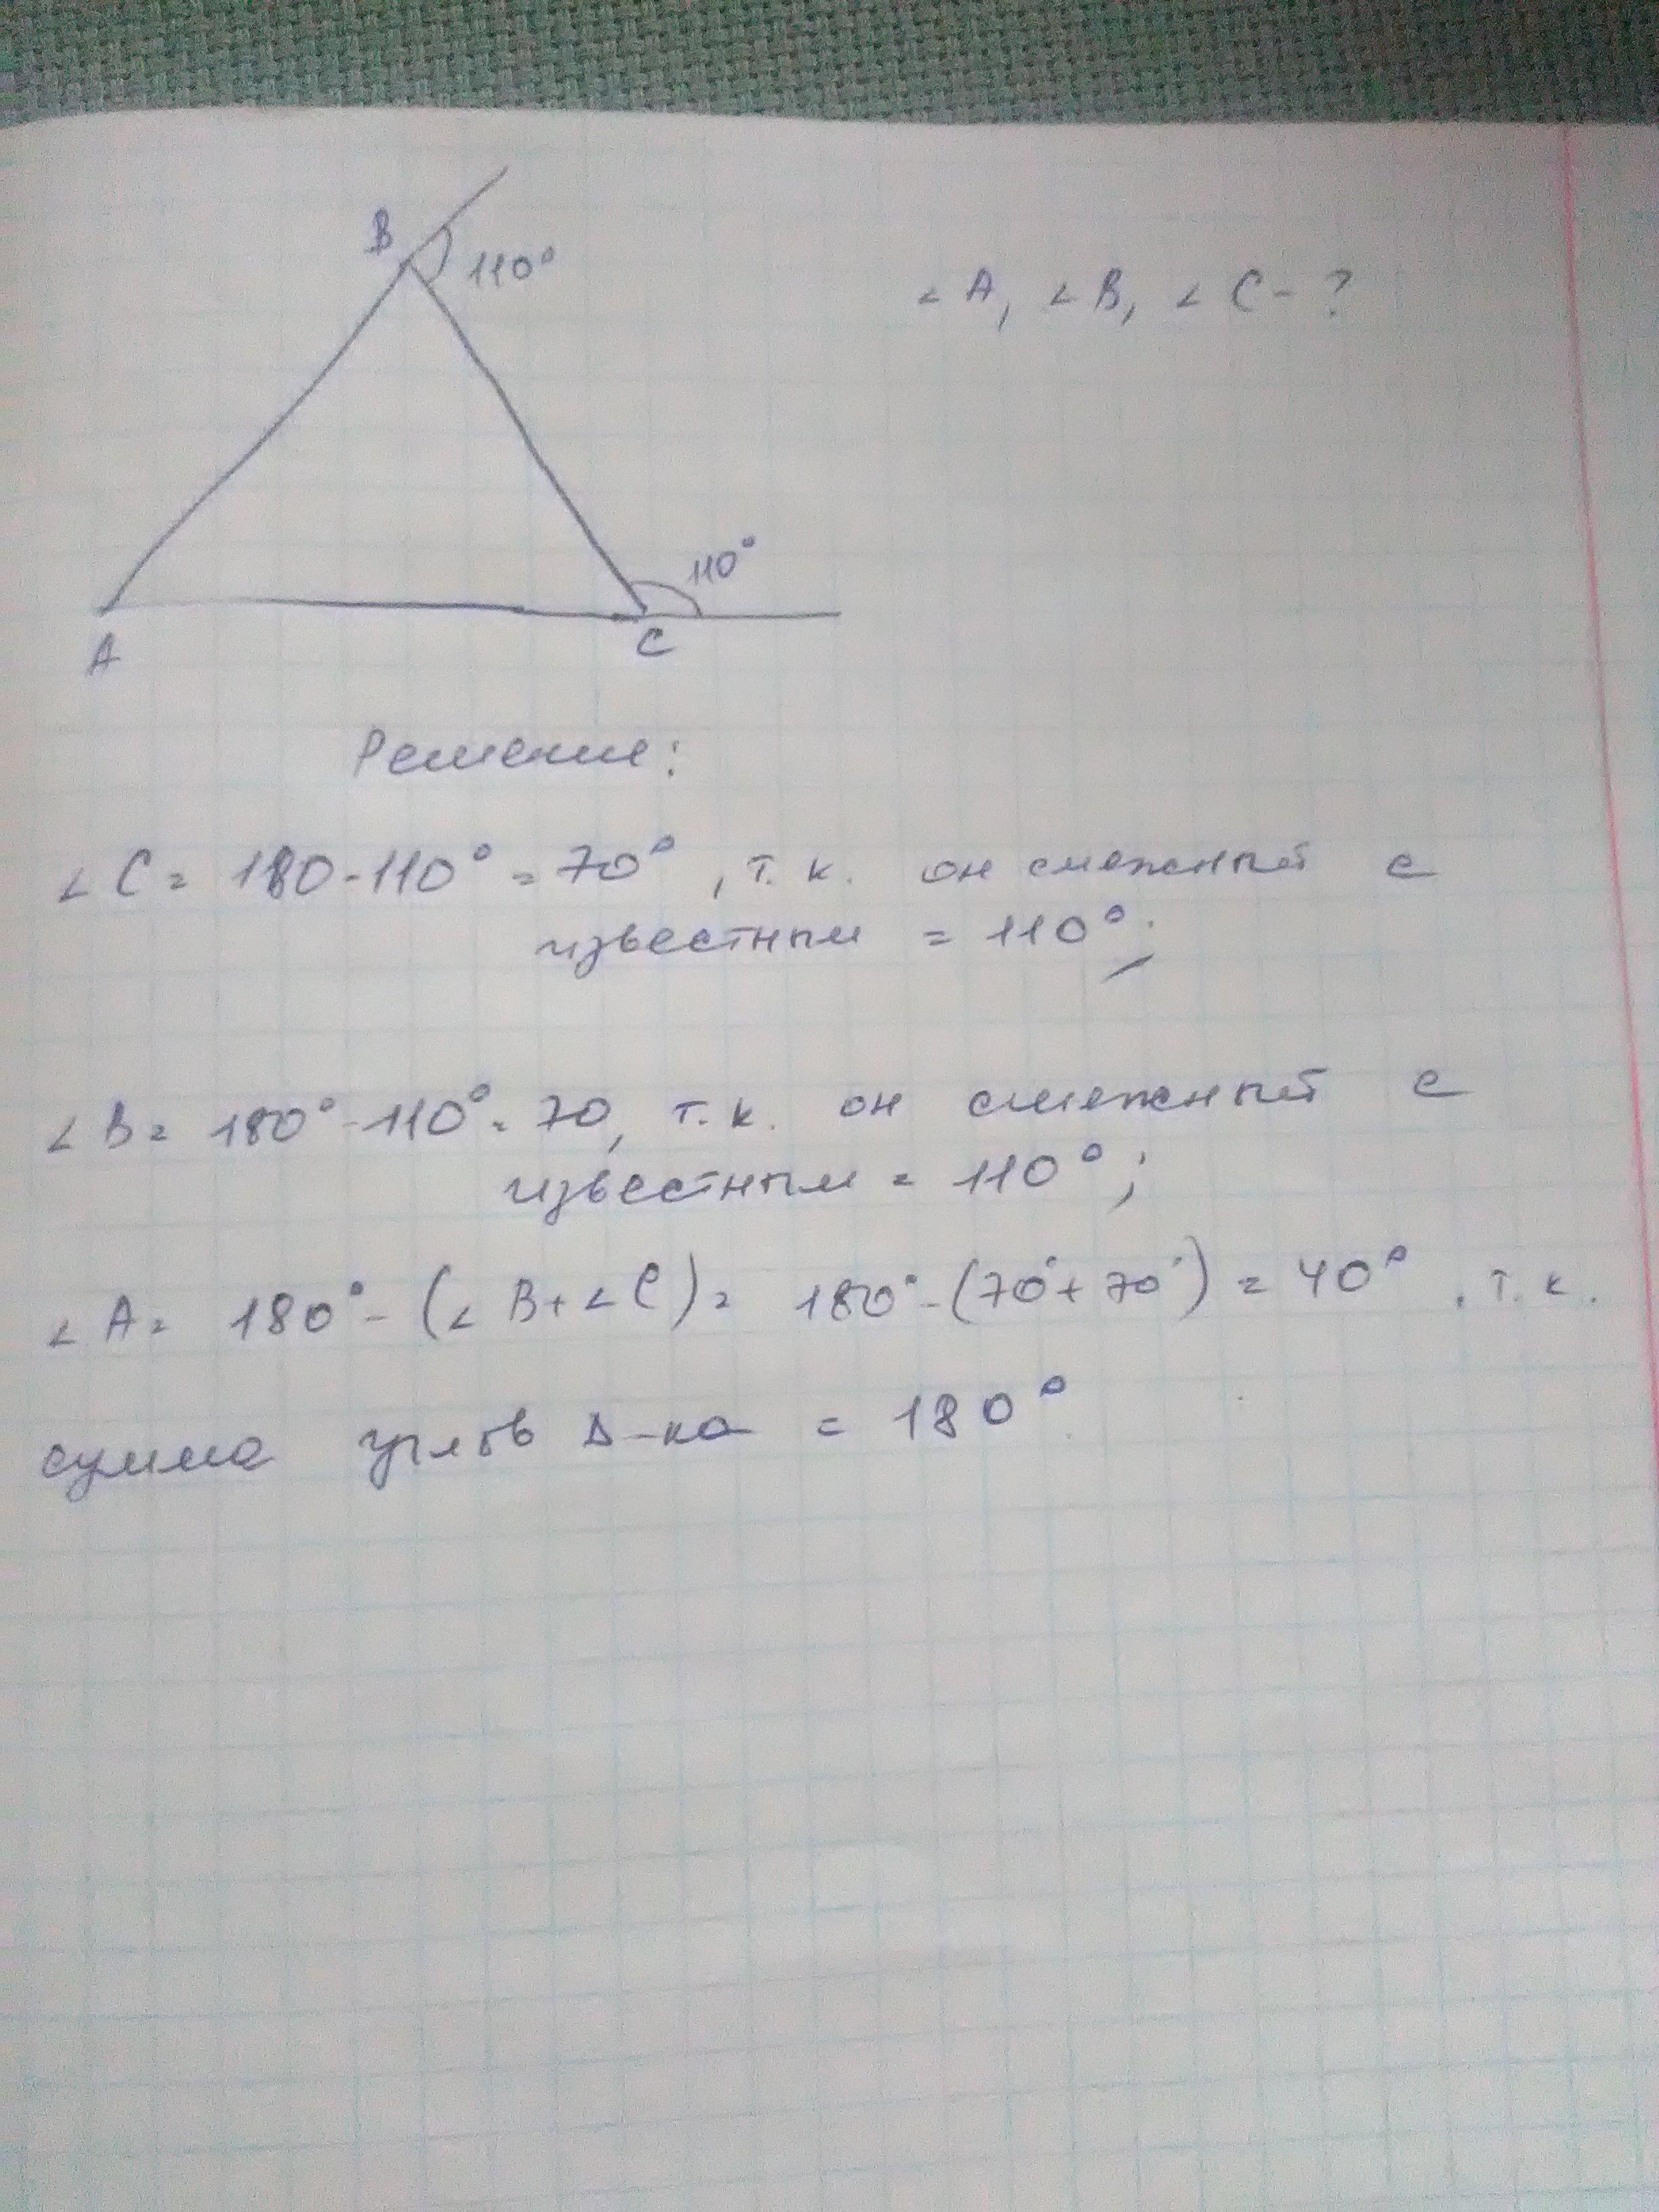 B
110°
∠A, ∠B, ∠C - ?
110°
A
C
Решение:
∠C = 180 - 110° = 70°, т. к. он смежный с
известным = 110°;
∠B = 180° - 110° = 70, т. к. он смежный с
известным = 110°;
∠A = 180° - (∠B + ∠C) = 180° - (70° + 70°) = 40°, т. к.
сумма углов Δ-ка = 180°